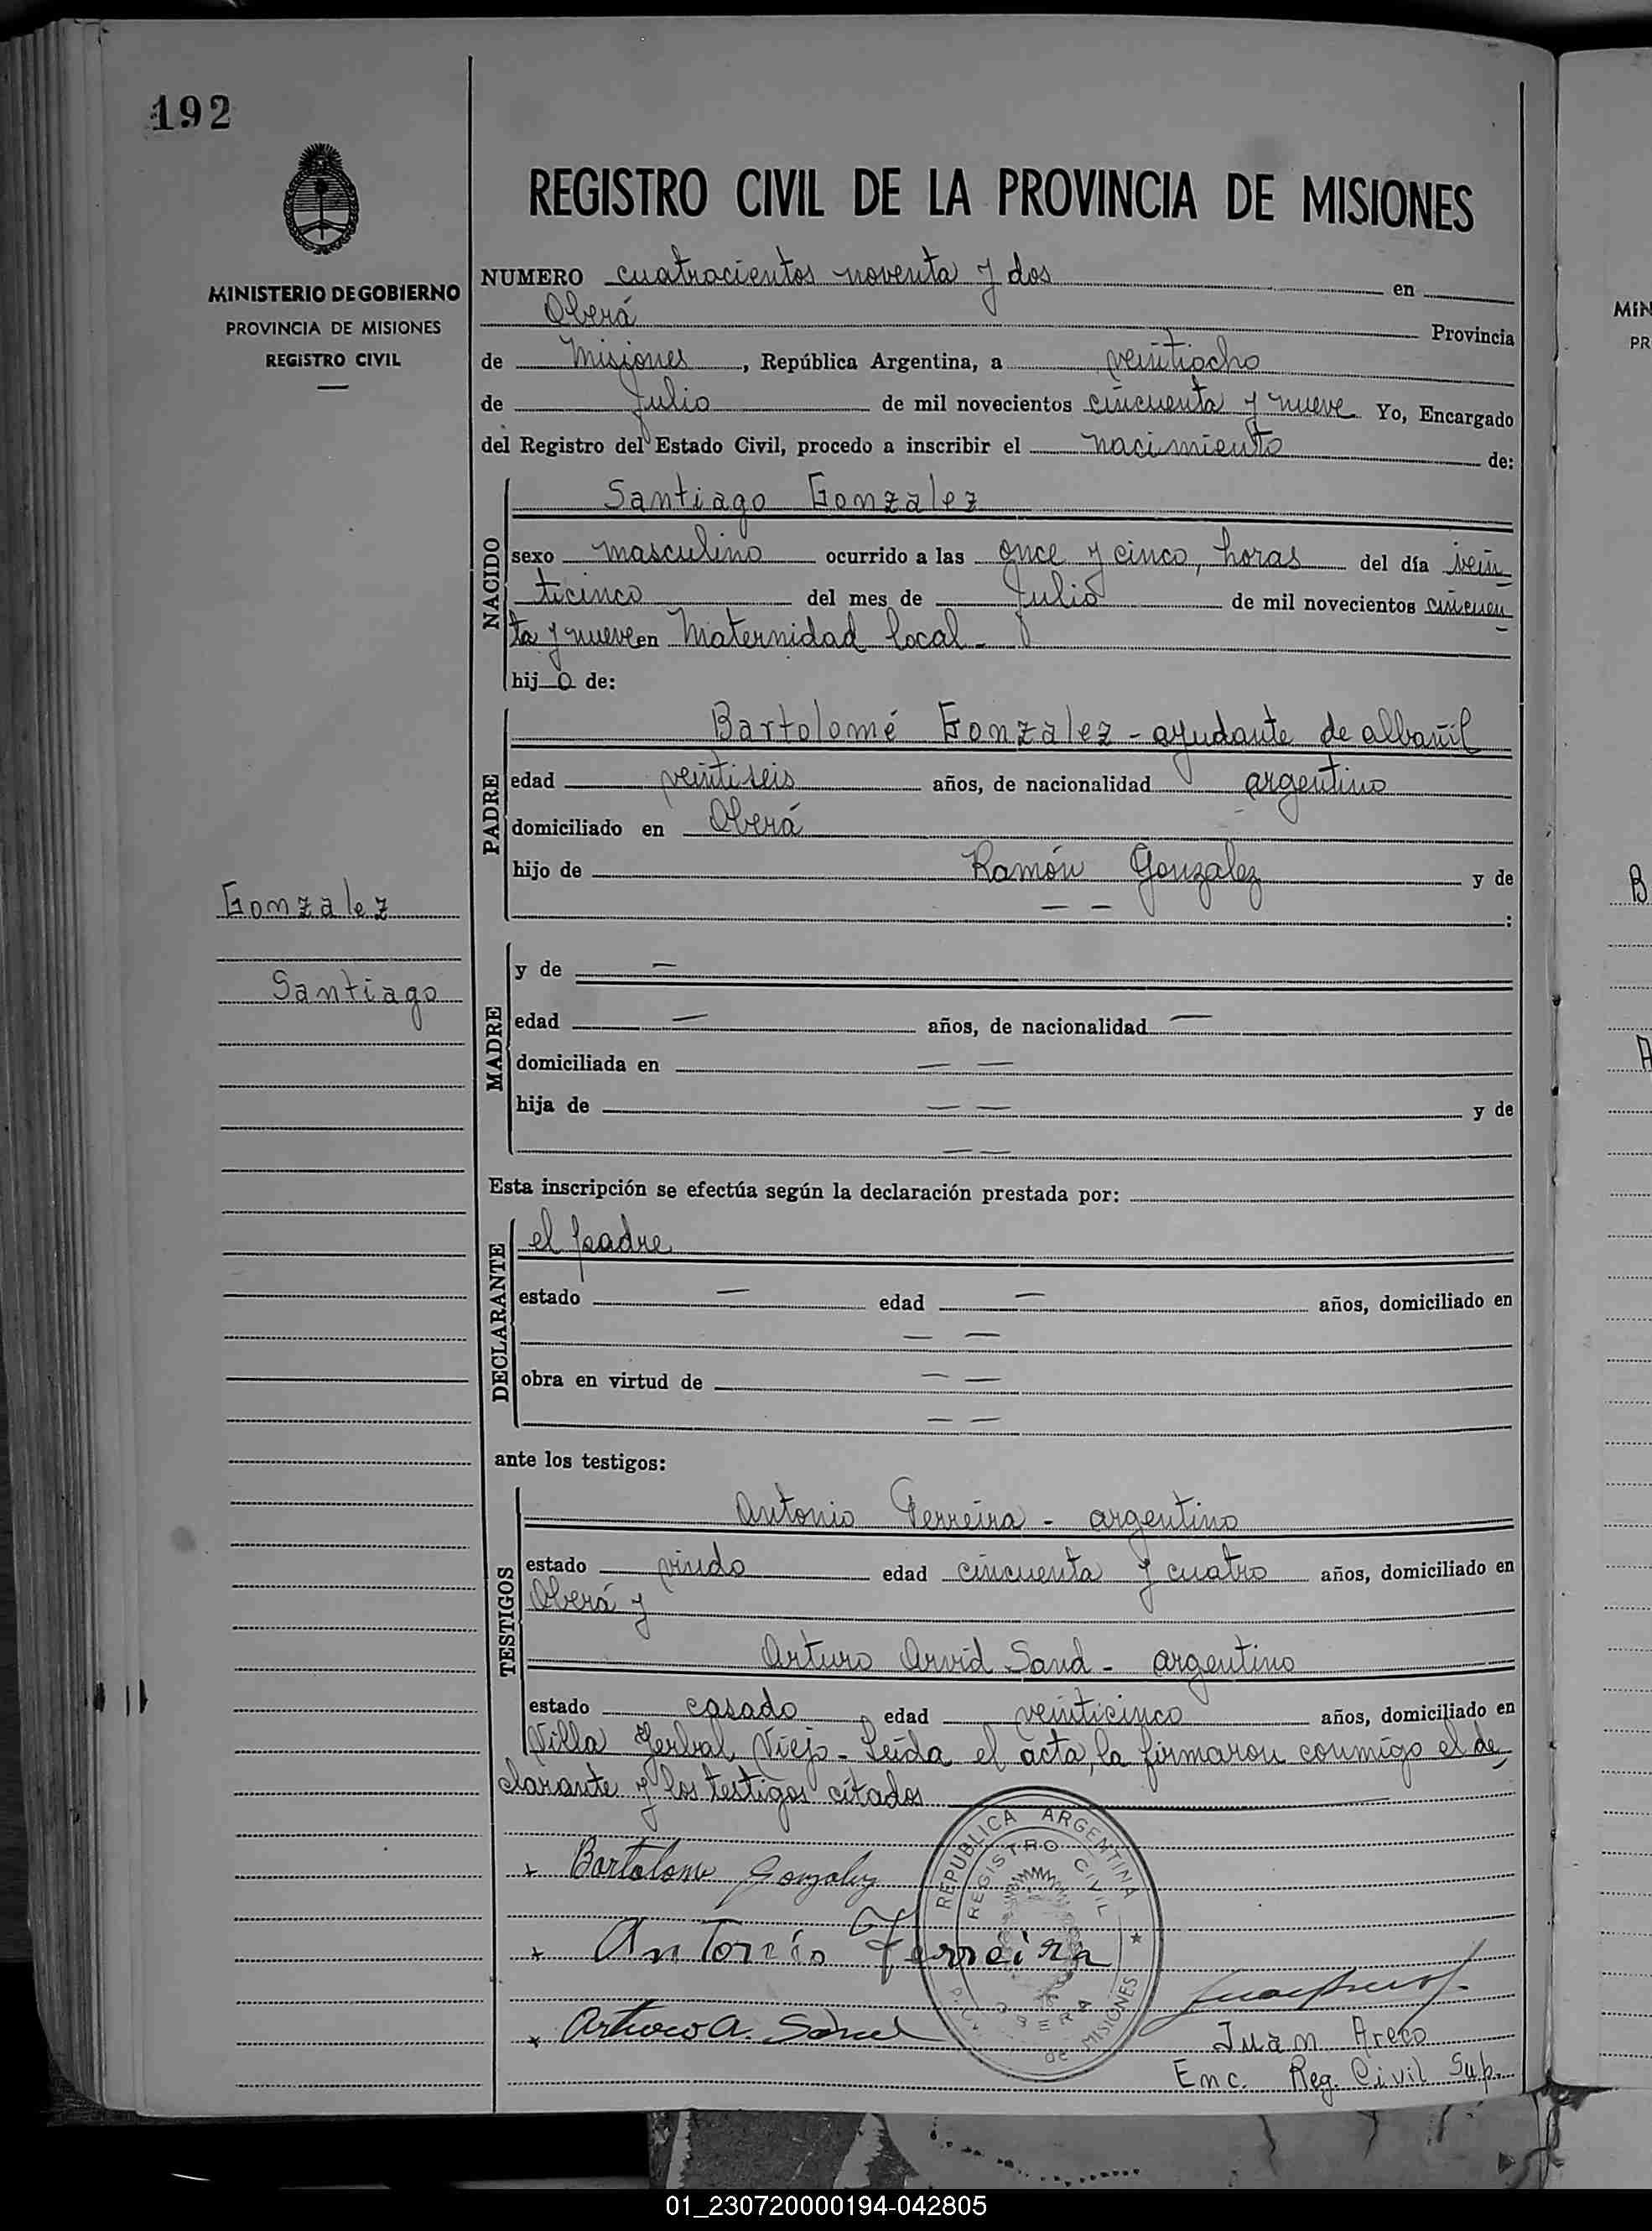 192
MINISTERIO DE GOBIERNO
PROVINCIA DE MISIONES
REGISTRO CIVIL
REGISTRO CIVIL DE LA PROVINCIA DE MISIONES
NUMERO cuatrocientos noventa y dos en
Oberá Provincia
de Misiones, República Argentina, a veintiocho
de Julio de mil novecientos cincuenta y nueve Yo, Encargado
del Registro del Estado Civil, procedo a inscribir el nacimiento de:
NACIDO
Santiago Gonzalez
sexo masculino ocurrido a las once y cinco, horas del día vein
ticinco del mes de Julio de mil novecientos cincuen
ta y nueve en Maternidad local -
hijo de:
PADRE
Bartolomé Gonzalez - ayudante de albañil
edad veintiseis años, de nacionalidad argentino
domiciliado en Oberá
hijo de Ramón Gonzalez y de
— — :
Gonzalez
Santiago
MADRE
y de —
edad — años, de nacionalidad —
domiciliada en — —
hija de — — y de
— —
Esta inscripción se efectúa según la declaración prestada por:
DECLARANTE
el padre
estado — edad — años, domiciliado en
— —
obra en virtud de — —
— —
ante los testigos:
TESTIGOS
Antonio Ferreira - argentino
estado viudo edad cincuenta y cuatro años, domiciliado en
Oberá y
Arturo Arvid Sand - argentino
estado casado edad veinticinco años, domiciliado en
Villa Yerbal Viejo - Leída el acta, la firmaron conmigo el de
clarante y los testigos citados
REPUBLICA ARGENTINA
REGISTRO CIVIL
OBERA
de MISIONES
Bartolome Gonzalez
Antonio Ferreira
Arturo A. Sand
Juan Areco
Enc. Reg. Civil Sup.
MIN
PR
B
A
01_230720000194-042805